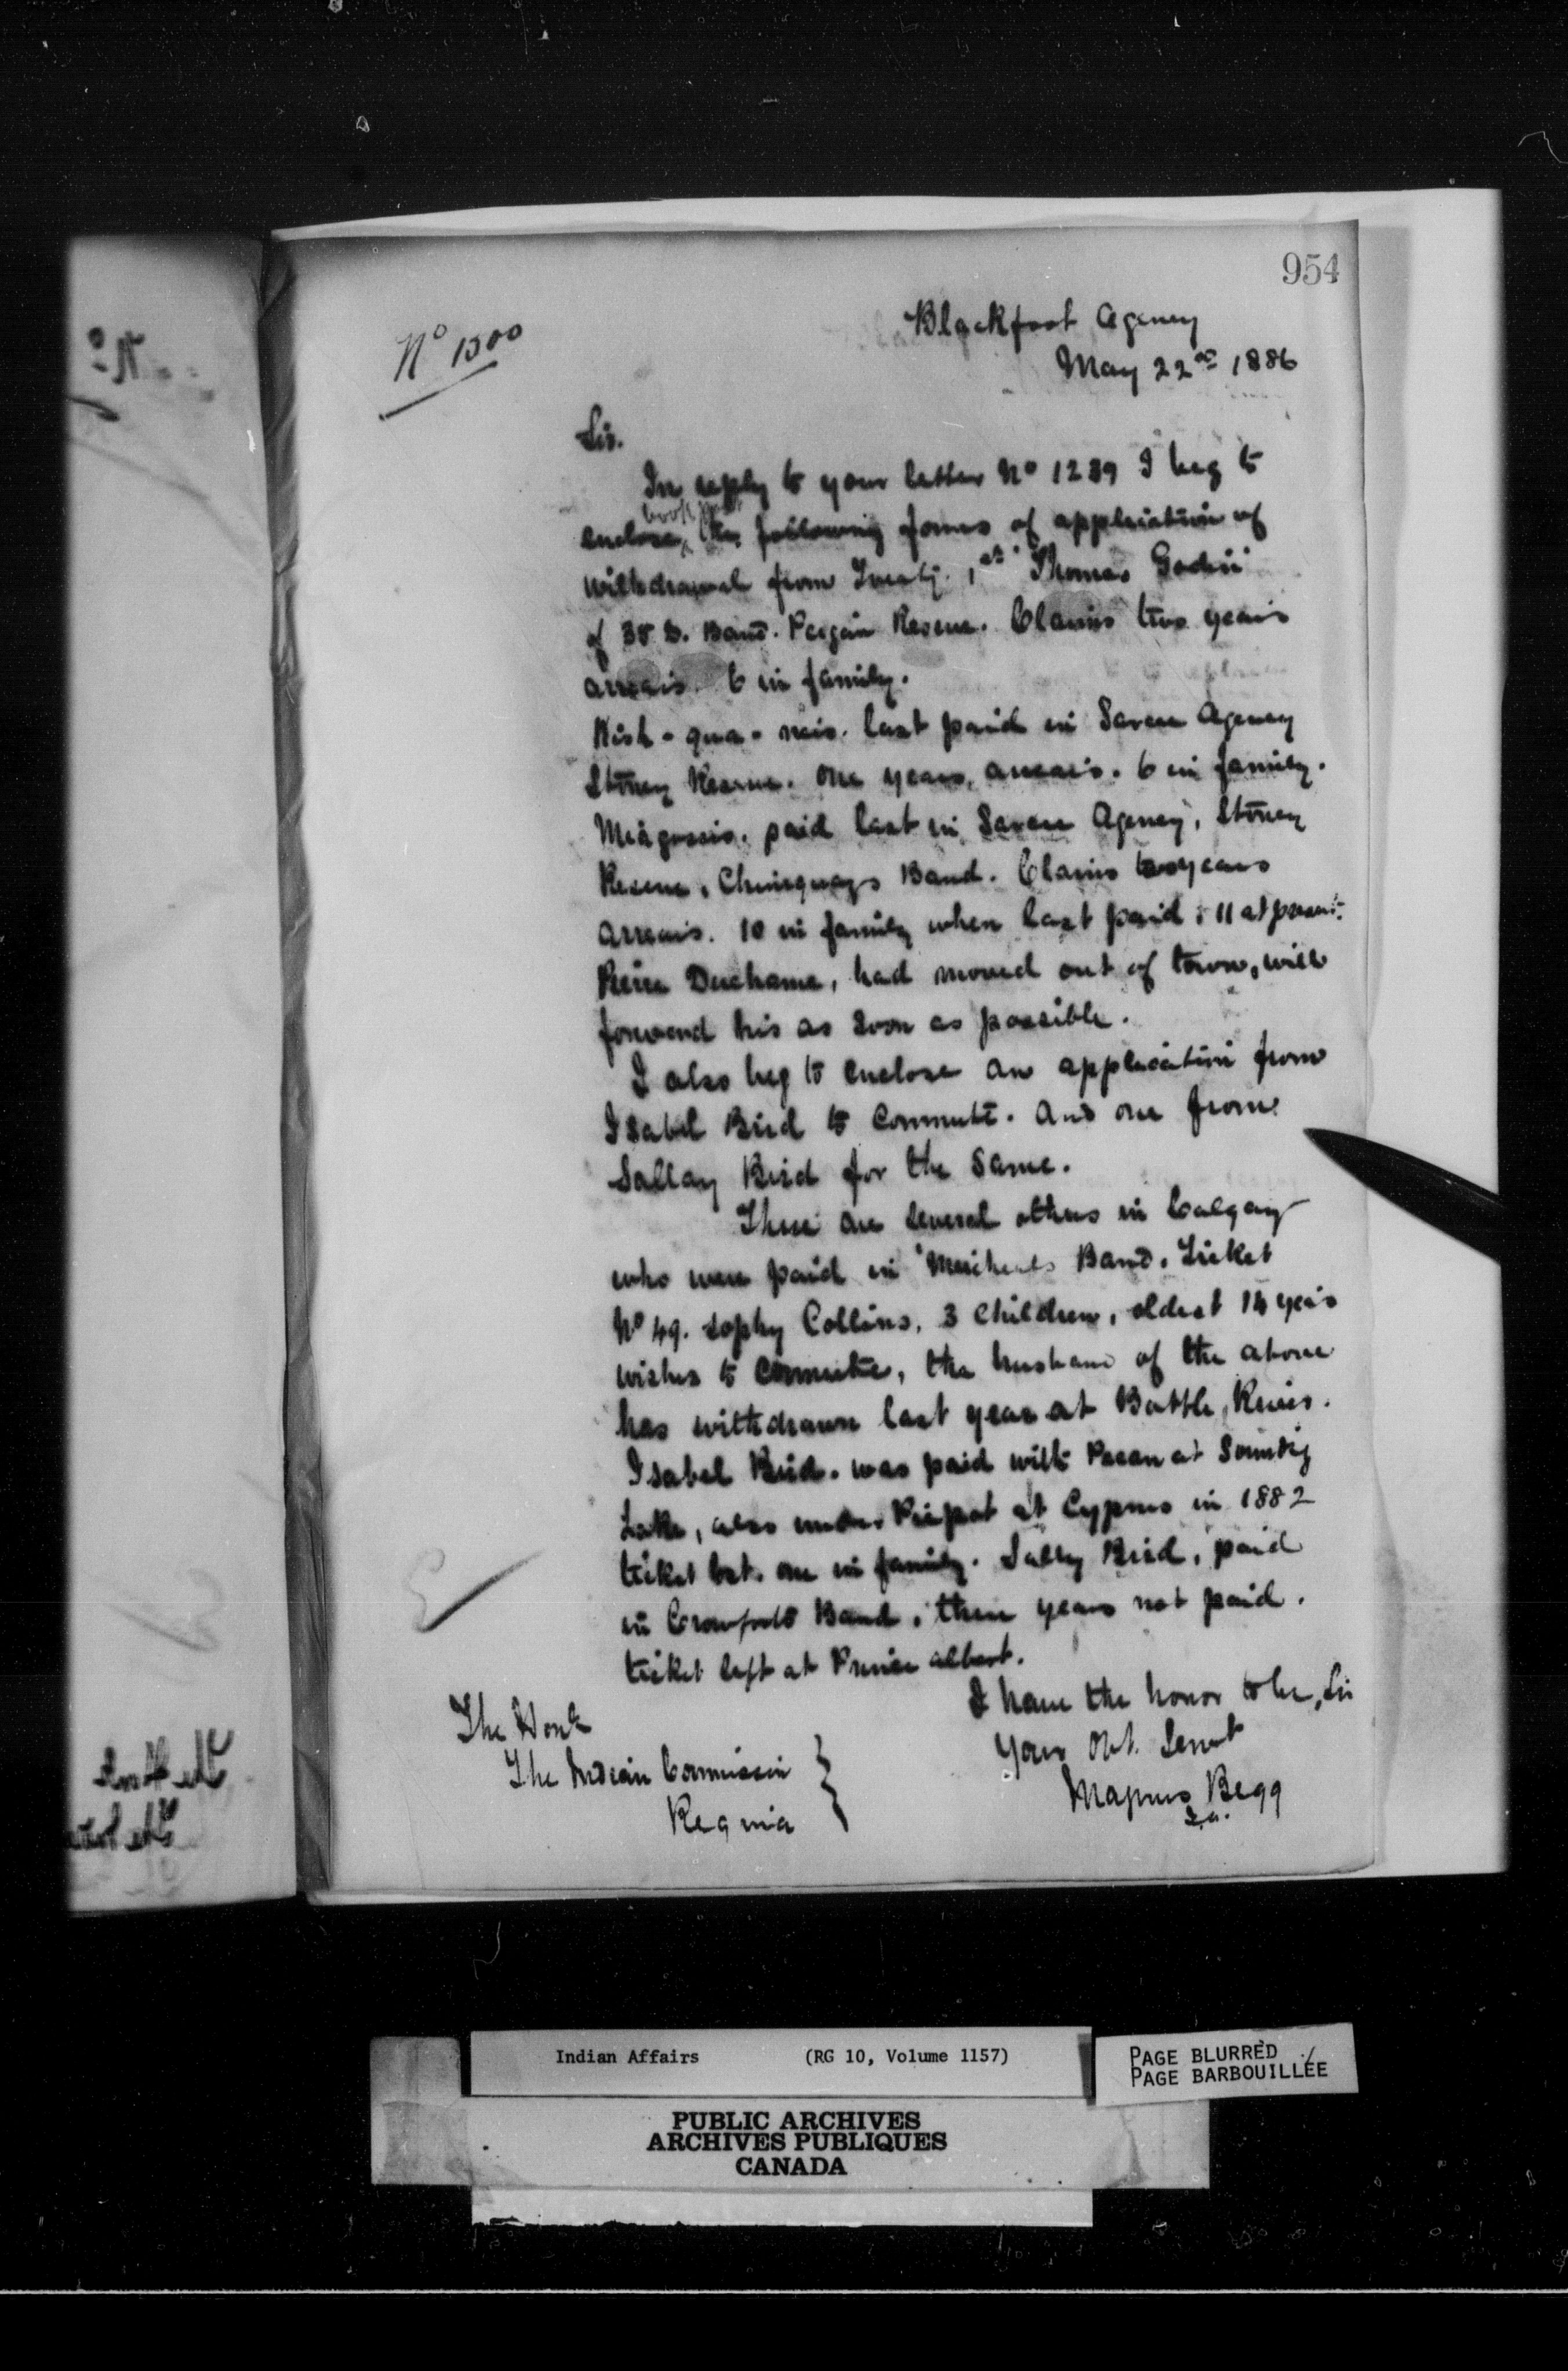 954
No 1300
Blackfoot Agency
May 22nd 1886
Sir.
In reply to your letter No 1289 I beg to
book post
enclose, the following forms of application of
withdrawal from Treaty. 1st Thomas Godin
of Band. Peigan Reserve. Claims two years
arrears. 6 in family.
last paid in Sarcee Agency
Stoney Reserve. One years, arrears. 6 in family.
paid last in Sarcee Agency, Stoney
Reserve, Chiniquays Band. Claims two years
arrears. 10 in family when last paid : 11 at present.
Ducharme, had moved out of town, will
forward his as soon as possible.
I also beg to enclose an application from
Isabel Bird to Commute. And one from
Sallay Bird for the Same.
There are several others in Calgary
who were paid in Band. Ticket
No 49. Sophy Collins, 3 Children, oldest 14 years
wishes to Commute, the husband of the above
has withdrawn last year at Battle River.
Isabel Bird. was paid with Pecan at Sounding
Lake, also under Piepot at Cyprus in 1882
ticket lost. one in family. Sally Bird, paid
in Crowfoots Band, three years not paid.
ticket left at Prince Albert.
I have the honor to be, Sir
Your Obt. Servt
Magnus Begg
I.A.
The Honle
The Indian Commissin
Regina
Indian Affairs (RG 10, Volume 1157)
PAGE BLURRED
PAGE BARBOUILLÉE
PUBLIC ARCHIVES
ARCHIVES PUBLIQUES
CANADA